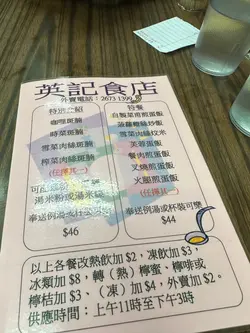 英記食店
外賣電話：2673 1399
特別介紹
咖喱斑腩
時菜斑腩
雪菜肉絲斑腩
榨菜肉絲斑腩
(任擇其一)
湯米粉或湯米線
奉送例湯或
$46
特餐
自製菜甫煎蛋飯
雪菜肉絲炆米
芙蓉蛋飯
餐肉煎蛋飯
叉燒煎蛋飯
火腿煎蛋飯
(任擇其一)
奉送例湯或杯裝可樂
$44
以上各餐改熱飲加 $2，凍飲加 $3，
冰類加 $8，轉（熱）檸蜜、檸啡或
檸桔加 $3、（凍）加 $4，外賣加 $2。
供應時間：上午11時至下午3時